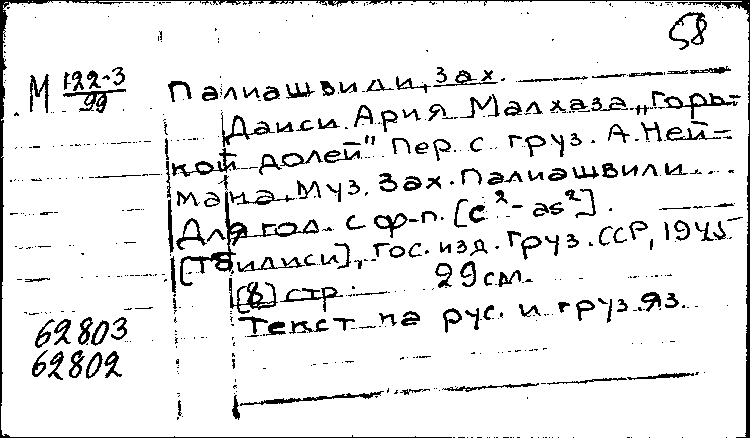 58
М 122-3
99
Палиашвили, Зах.
Даиси. Ария Малхаза „Горь-
кой долей" Пер. с груз. А. Ней-
мана. Муз. Зах. Палиашвили...
Для гол. с ф-п. [c²-as²].
[Тбилиси], Гос. изд. Груз. ССР, 1945
[8] стр. 29 см.
Текст на рус. и груз. яз.
62803
62802